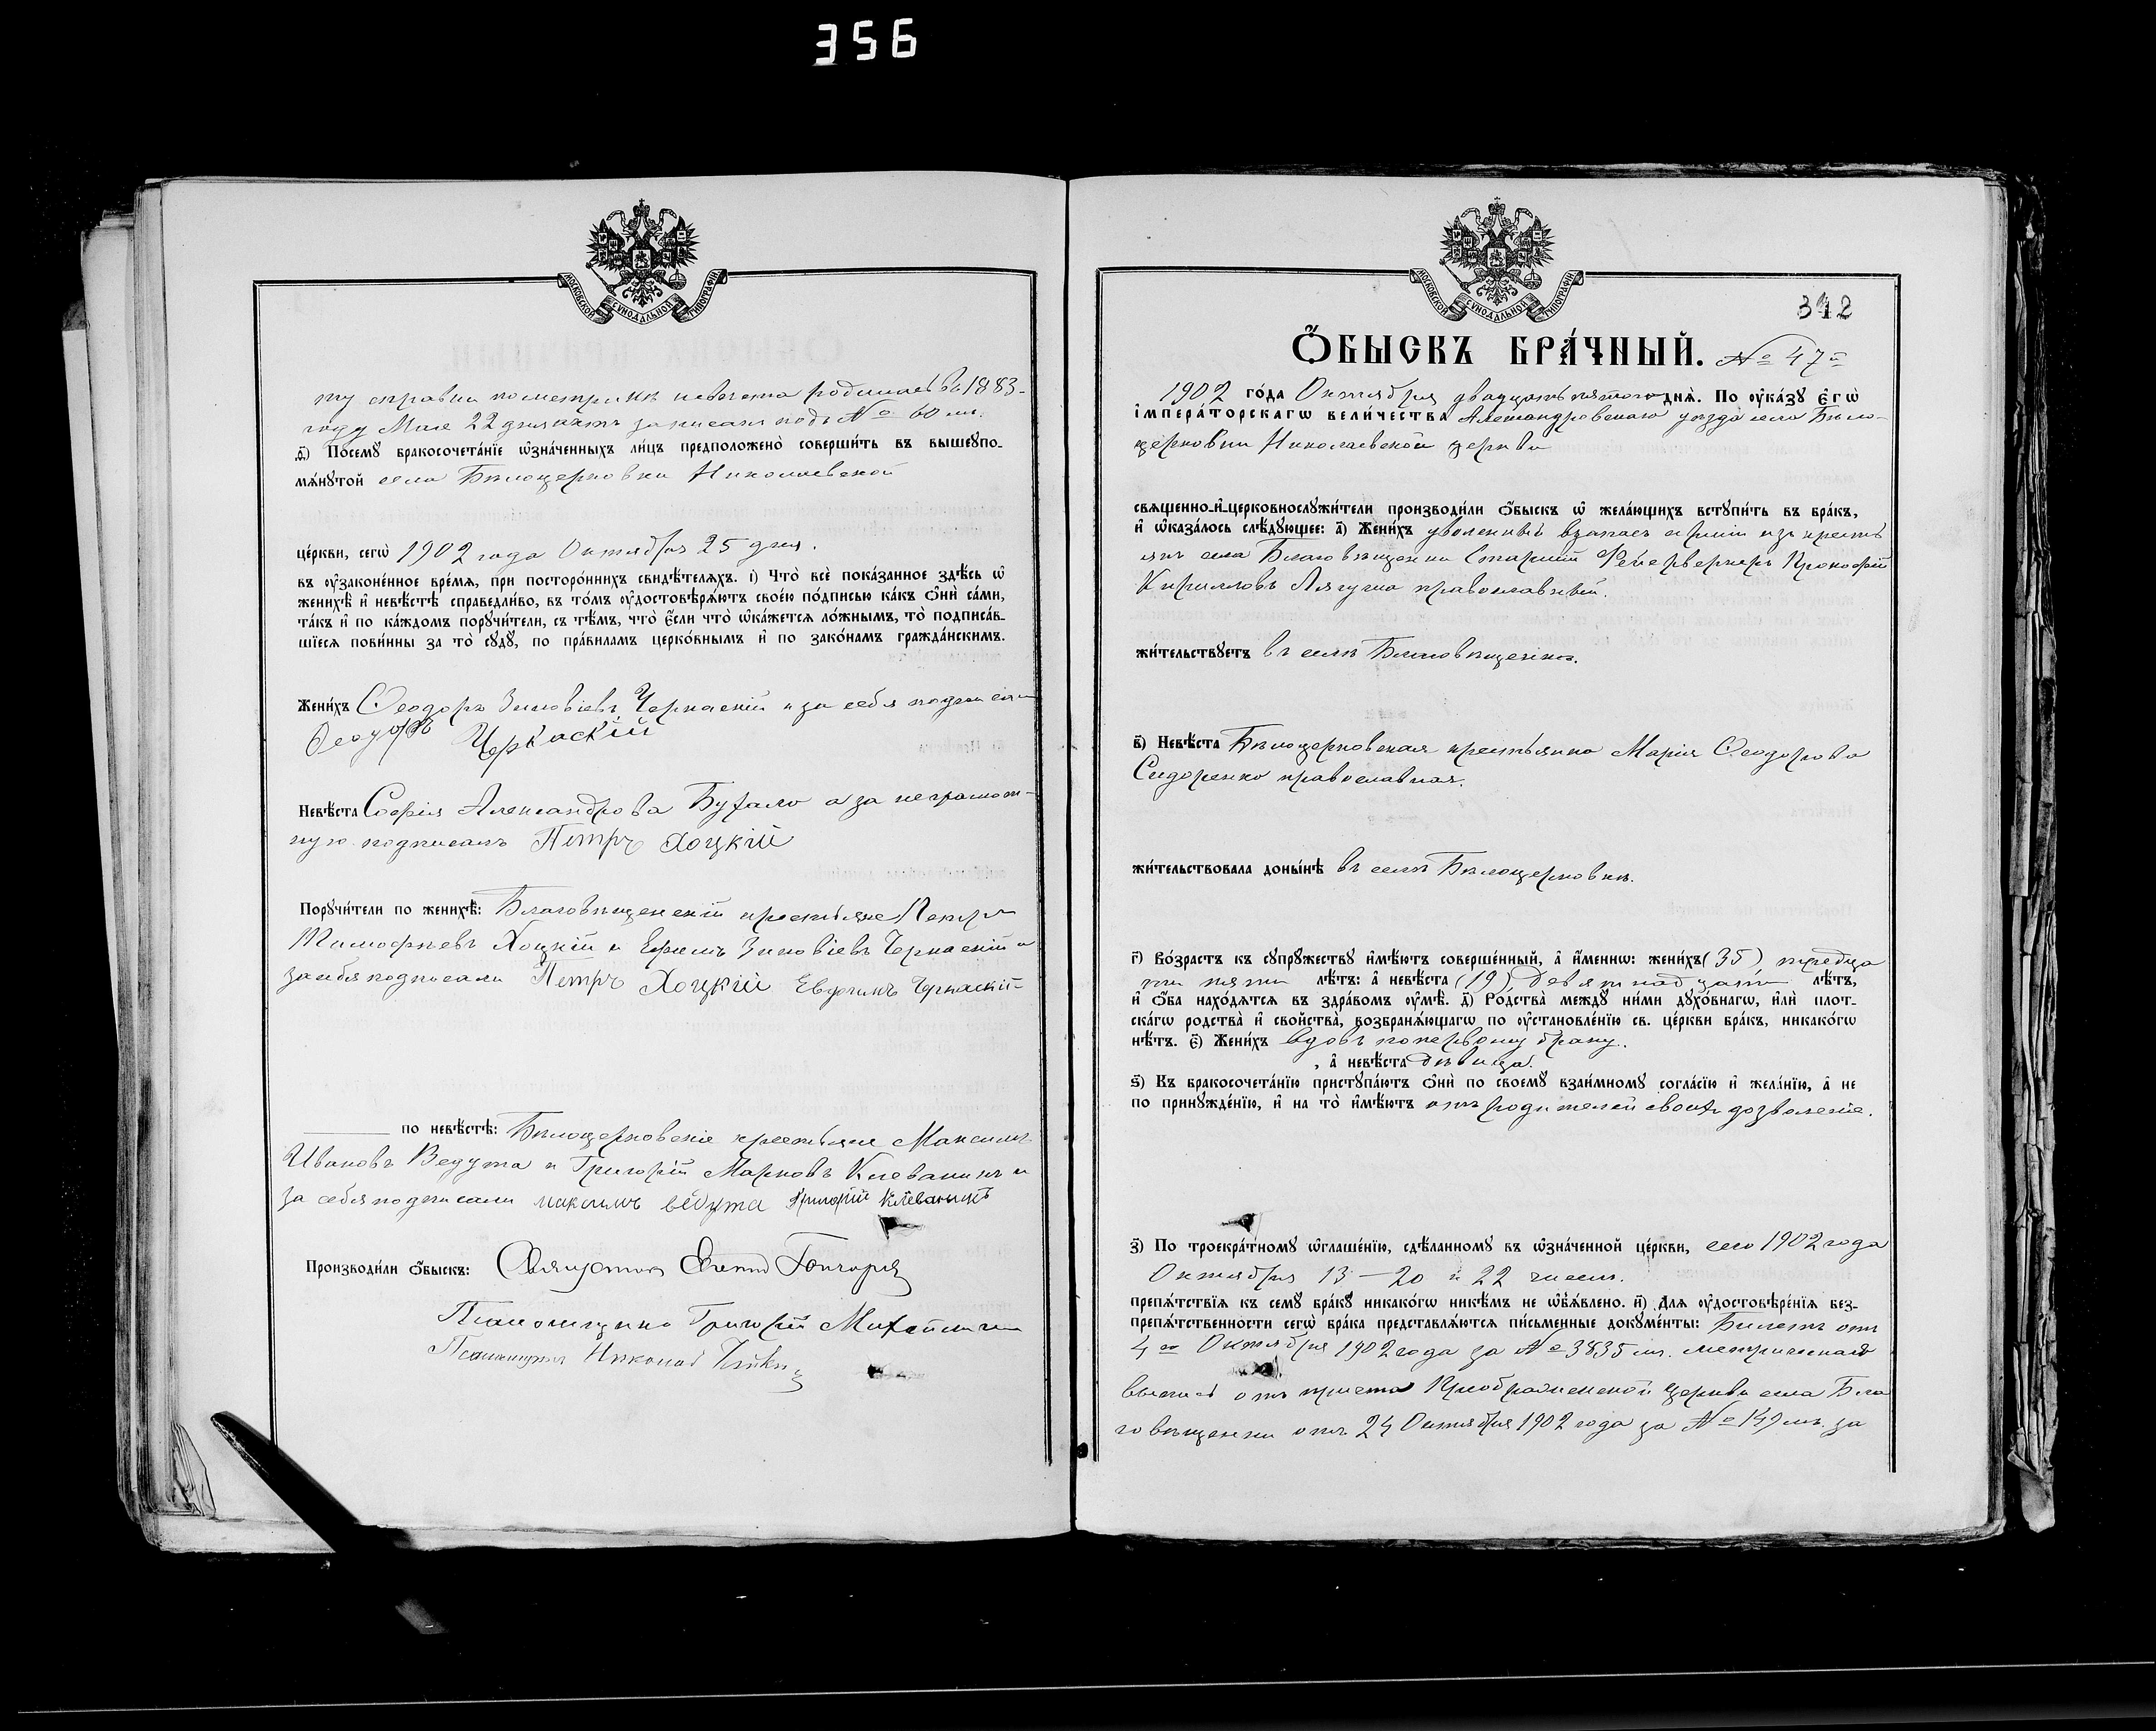 356
МОСКОВСКОЙ СѴНОДАЛЬНОЙ ТИПОГРАФІИ
ту справки по метрикѣ невеста родилась въ 1883
году Мая 22 дня актъ записанъ подъ № 60 мъ.
д҃і) Посемꙋ бракосочетаніе ѡзначенныхъ лицъ предположено совершить въ вышеупо-
мянꙋтой села Бѣлоцерковки Николаевской
церкви, сегѡ 1902 года Октября 25 дня.
въ ᲂузаконенное время, при постороннихъ свидѣтеляхъ. і) Что все показанное здѣсь ѡ
женихѣ и невѣстѣ справедливо, въ томъ ᲂудостовѣряютъ своею подписью какъ ѻни сами,
такъ и по каждомъ поручители, съ тѣмъ, что если что ѡкажется ложнымъ, то подписав-
шіеся повинны за то сꙋдꙋ, по правиламъ церковнымъ и по законамъ гражданскимъ.
Женихъ Ѳеодоръ Зиновіевъ Черкаскій и за себя подписалъ
Ѳеодоръ Черкаскій
Невѣста Софія Александрова Бухало а за неграмот-
ную подписалъ Петръ Хоцкій
Порꙋчители по женихѣ: Благовѣщенскіи крестьяне Петръ
Тимофѣевъ Хоцкій и Ефимъ Зиновіевъ Черкаскій и
за себя подписали Петръ Хоцкій Черкаскій
по невѣстѣ: Бѣлоцерковскіе крестьяне Максимъ
Ивановъ Ведута и Григорій Марковъ Клеваникъ и
за себя подписали максимъ ведута Григорій Клеваникъ
Производили ѻбыскъ: Священникъ Гончаровъ
Псаломщикъ Григорій
Псаломщикъ Николай
МОСКОВСКОЙ СѴНОДАЛЬНОЙ ТИПОГРАФІИ
342
Ѻбыскъ брачный. № 47й
1902 года Октября двадцать пятого дня. По ᲂуказꙋ Егѡ
Императорскагѡ Величества Александровскаго уезда села Бѣло-
церковки Николаевской церкви
священно-и-церковнослꙋжители производили ѻбыскъ ѡ желающихъ встꙋпить въ бракъ,
и ѡказалось слѣдꙋющее: а҃) Женихъ уволенный в запасъ арміи изъ кресть
янъ села Благовѣщенки Старшій Фейерверкеръ Прокофій
Кирилловъ Лягуша православный.
жительствꙋетъ въ селѣ Благовѣщенкѣ.
в҃) Невѣста Бѣлоцерковская крестьянка Марія Ѳеодорова
Сидоренко православная.
жительствовала донынѣ въ селѣ Бѣлоцерковкѣ.
г҃) Возрастъ къ сꙋпрꙋжествꙋ имѣютъ совершенный, а именнѡ: женихъ (35) тридца
ти пяти лѣтъ: а невѣста (19) девятнадцати лѣтъ,
и ѻба находятся въ здравомъ ᲂумѣ. д҃) Родства междꙋ ними дꙋховнагѡ, или плот-
скагѡ родства и свойства, возбраняющагѡ по ᲂустановленію св. церкви бракъ, никакогѡ
нѣтъ. є҃) Женихъ вдовъ по первому браку.
, а невѣста дѣвица.
ѕ҃) Къ бракосочетанію пристꙋпаютъ ѻни по своемꙋ взаимномꙋ согласію и желанію, а не
по принꙋжденію, и на то имѣютъ отъ родителей своихъ дозволеніе.
з҃) По троекратномꙋ ѡглашенію, сдѣланномꙋ въ ѡзначенной церкви, сего 1902 года
Октября 13-20 и 22 чиселъ.
препятствія къ семꙋ бракꙋ никакогѡ никѣмъ не ѡбъявлено. и҃) Для ᲂудостовѣренія без-
препятственности сегѡ брака представляются письменные докꙋменты: Билетъ отъ
4го Октября 1902 года за № 3835 мъ. метрическая
выпись отъ причта Преображенской церкви села Бла
говѣщенки отъ 24 Октября 1902 года за № 149 мъ. за